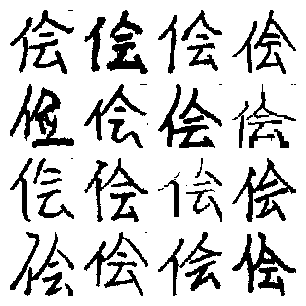 侩侩侩侩
侩侩侩
侩侩侩侩
侩侩侩侩